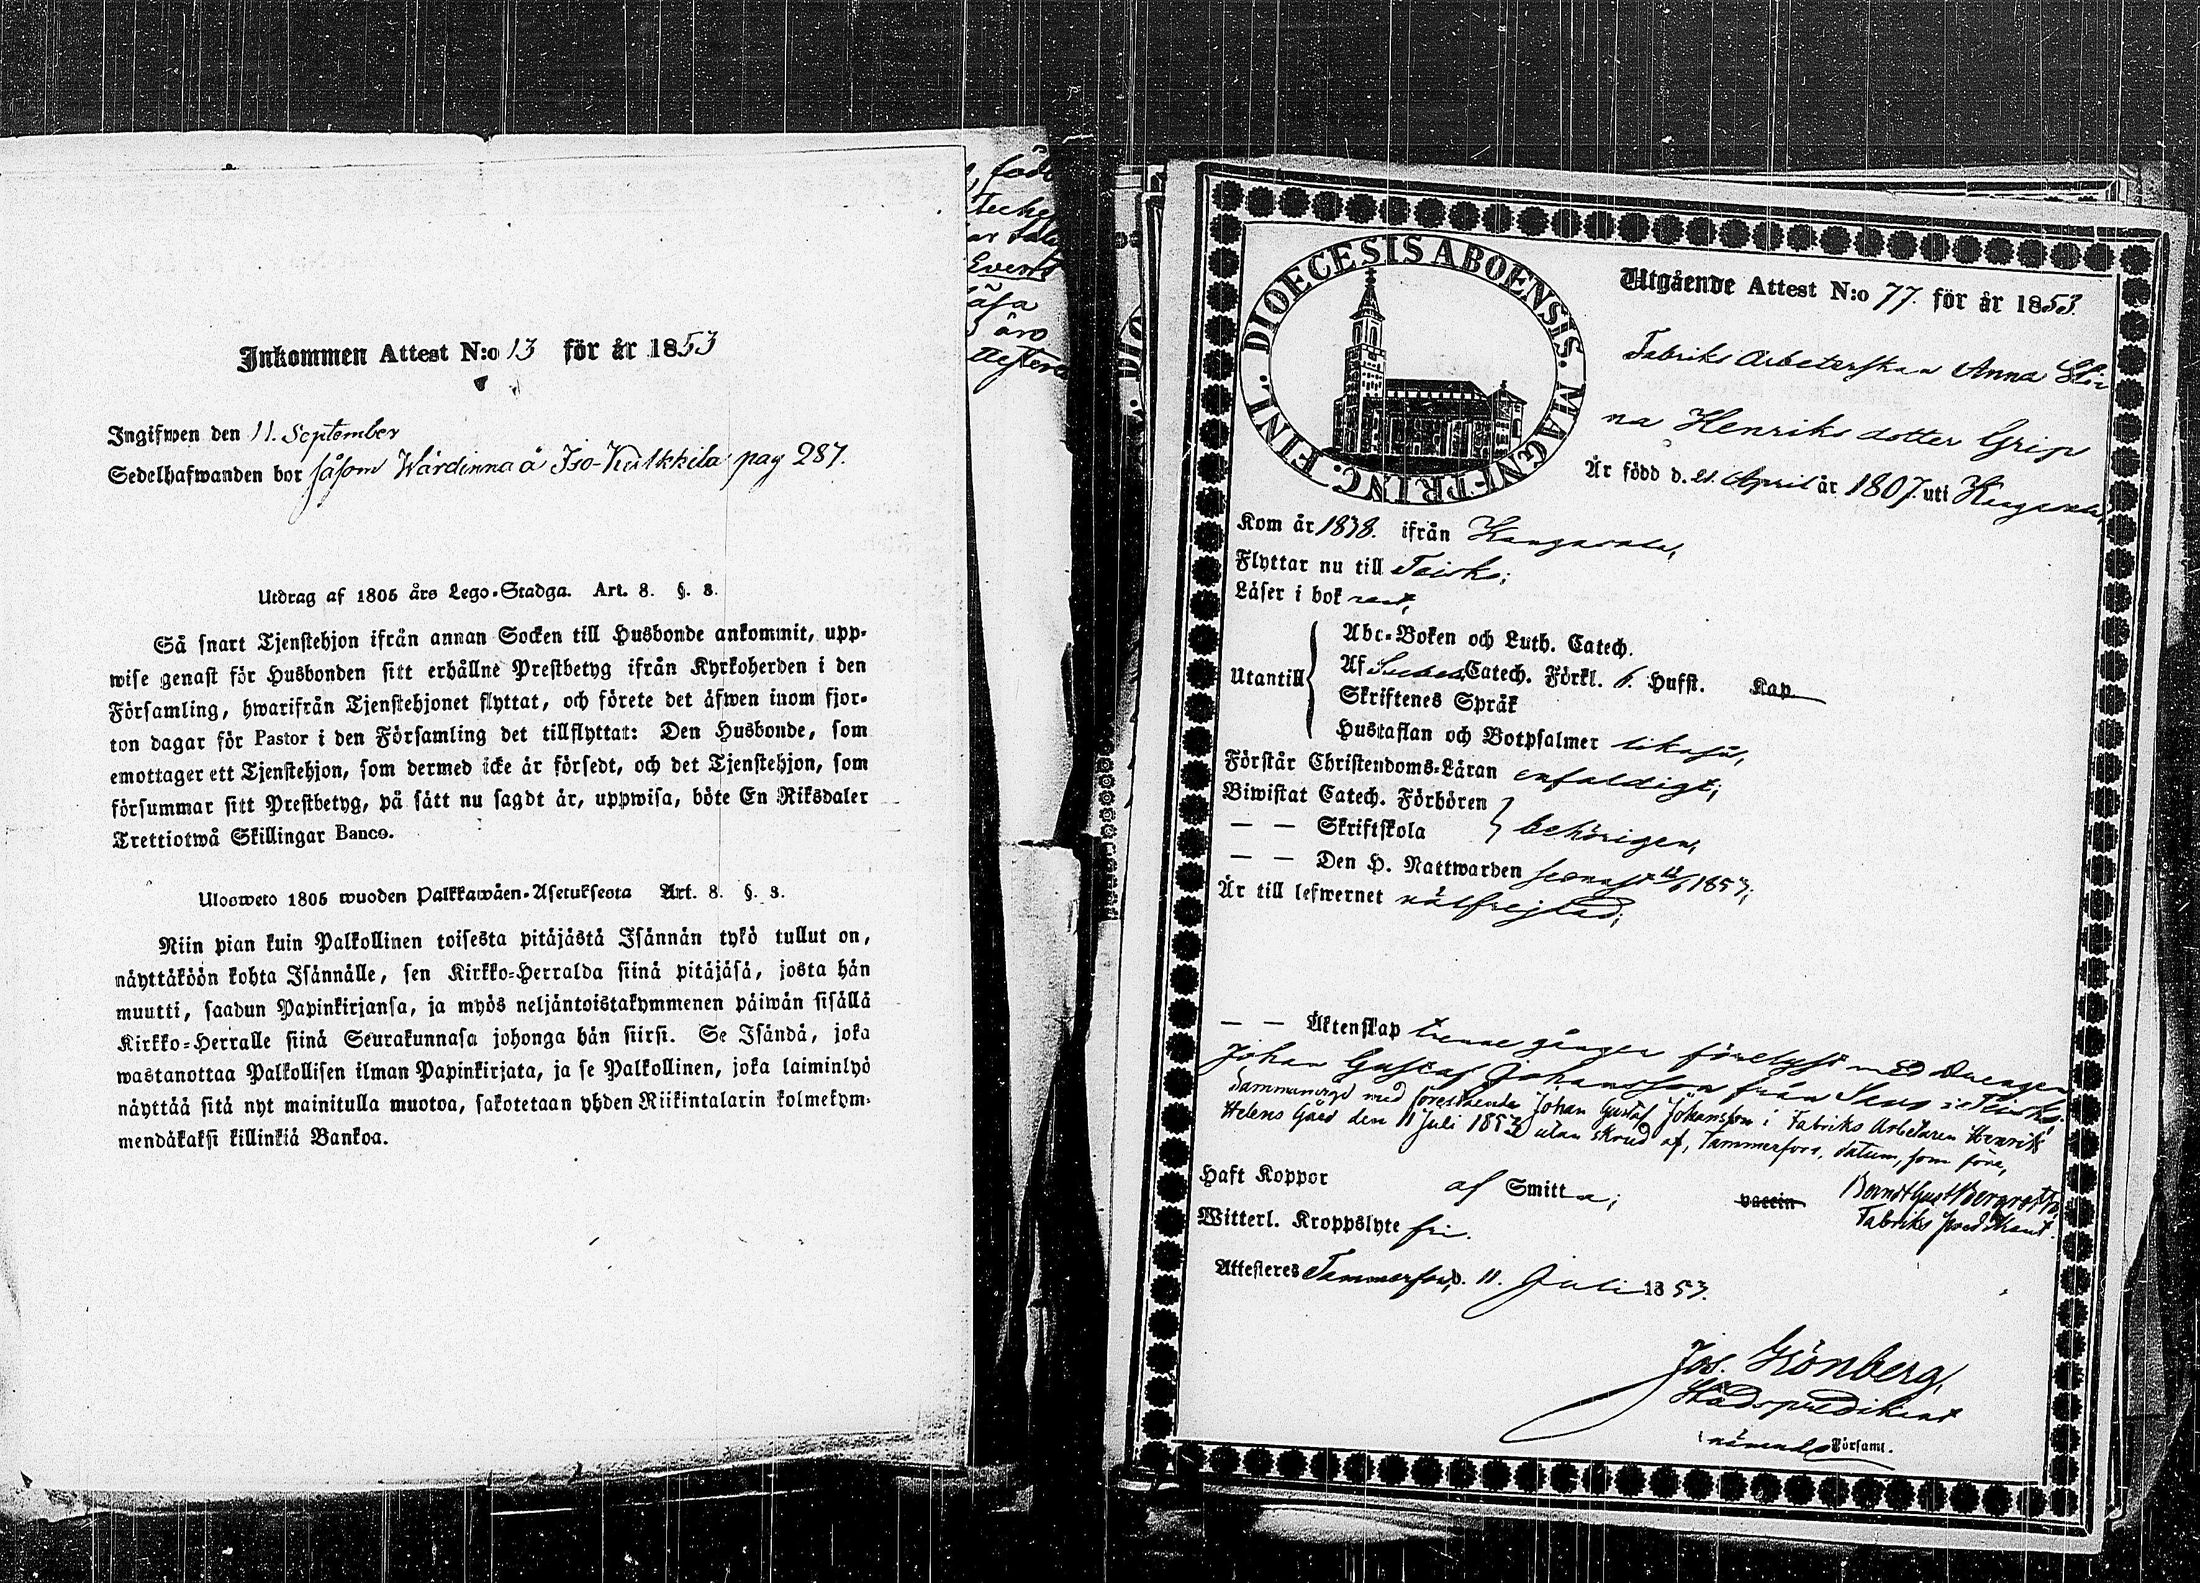 Inkommen Attest N:o 13 för år 1853
Ingifwen den 11. September
Sedelhafwanden bor såsom Wärdinna å Iso-Kulkkila pag 287.
Utdrag af 1805 års Lego-Stadga. Art. 8. §. 8.
Så snart Tjenstehjon ifrån annan Socken till Husbonde ankommit, upp-
wise genast för Husbonden sitt erhållne Prestbetyg ifrån Kyrkoherden i den
Församling, hwarifrån Tjenstehjonet flyttat, och förete det äfwen inom fjor-
ton dagar för Pastor i den Församling det tillflyttat: Den Husbonde, som
emottager ett Tjenstehjon, som dermed icke är försedt, och det Tjenstehjon, som
försummar sitt Prestbetyg, på sätt nu sagdt är, uppwisa, böte En Riksdaler
Trettiotwå Skillingar Banco.
Ulosweto 1805 wuoden Palkkawäen-Asetuksesta Art. 8. §. 8.
Niin pian kuin Palkollinen toisesta pitäjästä Isännän tykö tullut on,
näyttäköön kohta Isännälle, sen Kirkko-Herralda siinä pitäjäsä, josta hän
muutti, saadun Papinkirjansa, ja myös neljäntoistakymmenen päiwän sisällä
Kirkko-Herralle siinä Seurakunnasa johonga hän siirsi. Se Isändä, joka
wastanottaa Palkollisen ilman Papinkirjata, ja se Palkollinen, joka laiminlyö
näyttää sitä nyt mainitulla muotoa, sakotetaan yhden Riikintalarin kolmekym-
mendäkaksi killinkiä Bankoa.
DIOECESIS ABOENSIS. MAGNI PRINC. FINL.
Utgående Attest N:o 77. för år 1853.
Fabriks Arbeterskan Anna Sti
na Henriks dotter Grip
Är född d. 21. April år 1807. uti Kangasala,
Kom år 1838. ifrån Kangasala,
Flyttar nu till Teisko;
Läser i bok rent,
Utantill
Abc-Boken och Luth. Catech.
Af Catech. Förkl. 6. Hufst. Kap
Skriftenes Språk
Hustaflan och Botpsalmer likaså,
Förstår Christendoms-Läran enfaldigt;
Biwistat Catech. Förhören
— — Skriftskola behörigen,
— — Den H. Nattwarden senast 1853;
Är till lefwernet välfrejdad;
— — Äktenskap trenne gånger förelyst med Drengen
Johan Gustaf Johansson från i Teisko.
Sammanvigd med förestående Johan Gustaf Johansson i Fabriks Arbetaren Henrik
Helens Gård den 11 Juli 1853 utan skrud af, Tammerfors, datum, som före,
Bernd Gust Bergroth
Fabriks predikant.
Haft Koppor af Smitta; vaccin
Witterl. Kroppslyte fri.
Attesteres Tammerfors, d. 11. Juli 1853.
Jos. Grönberg,
Stadspredikant
i nämnde Församl.